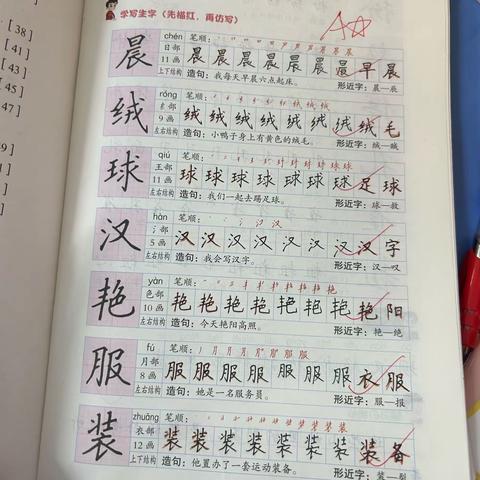 [38]
[41]
4]
45]
47]
49
51
]
]
]
学写生字（先描红，再仿写）
A☆
晨 chén 日部 11画 上下结构
笔顺：
晨 晨 晨 晨 晨 晨 晨 早 晨
造句：我每天早晨六点起床。 形近字：晨—辰
绒 róng 纟部 9画 左右结构
笔顺：
绒 绒 绒 绒 绒 绒 绒 绒 毛
造句：小鸭子身上有黄色的绒毛。 形近字：绒—贼
球 qiú 王部 11画 左右结构
笔顺：
球 球 球 球 球 球 球 足 球
造句：我们一起去踢足球。 形近字：球—救
汉 hàn 氵部 5画 左右结构
笔顺：
汉 汉 汉 汉 汉 汉 汉 汉 字
造句：我会写汉字。 形近字：汉—叹
艳 yàn 色部 10画 左右结构
笔顺：
艳 艳 艳 艳 艳 艳 艳 艳 阳
造句：今天艳阳高照。 形近字：艳—绝
服 fú 月部 8画 左右结构
笔顺：
服 服 服 服 服 服 服 衣 服
造句：她是一名服务员。 形近字：服—报
装 zhuāng 衣部 12画 上下结构
笔顺：
装 装 装 装 装 装 装 装 备
造句：他置办了一套运动装备。 形近字：装—裂